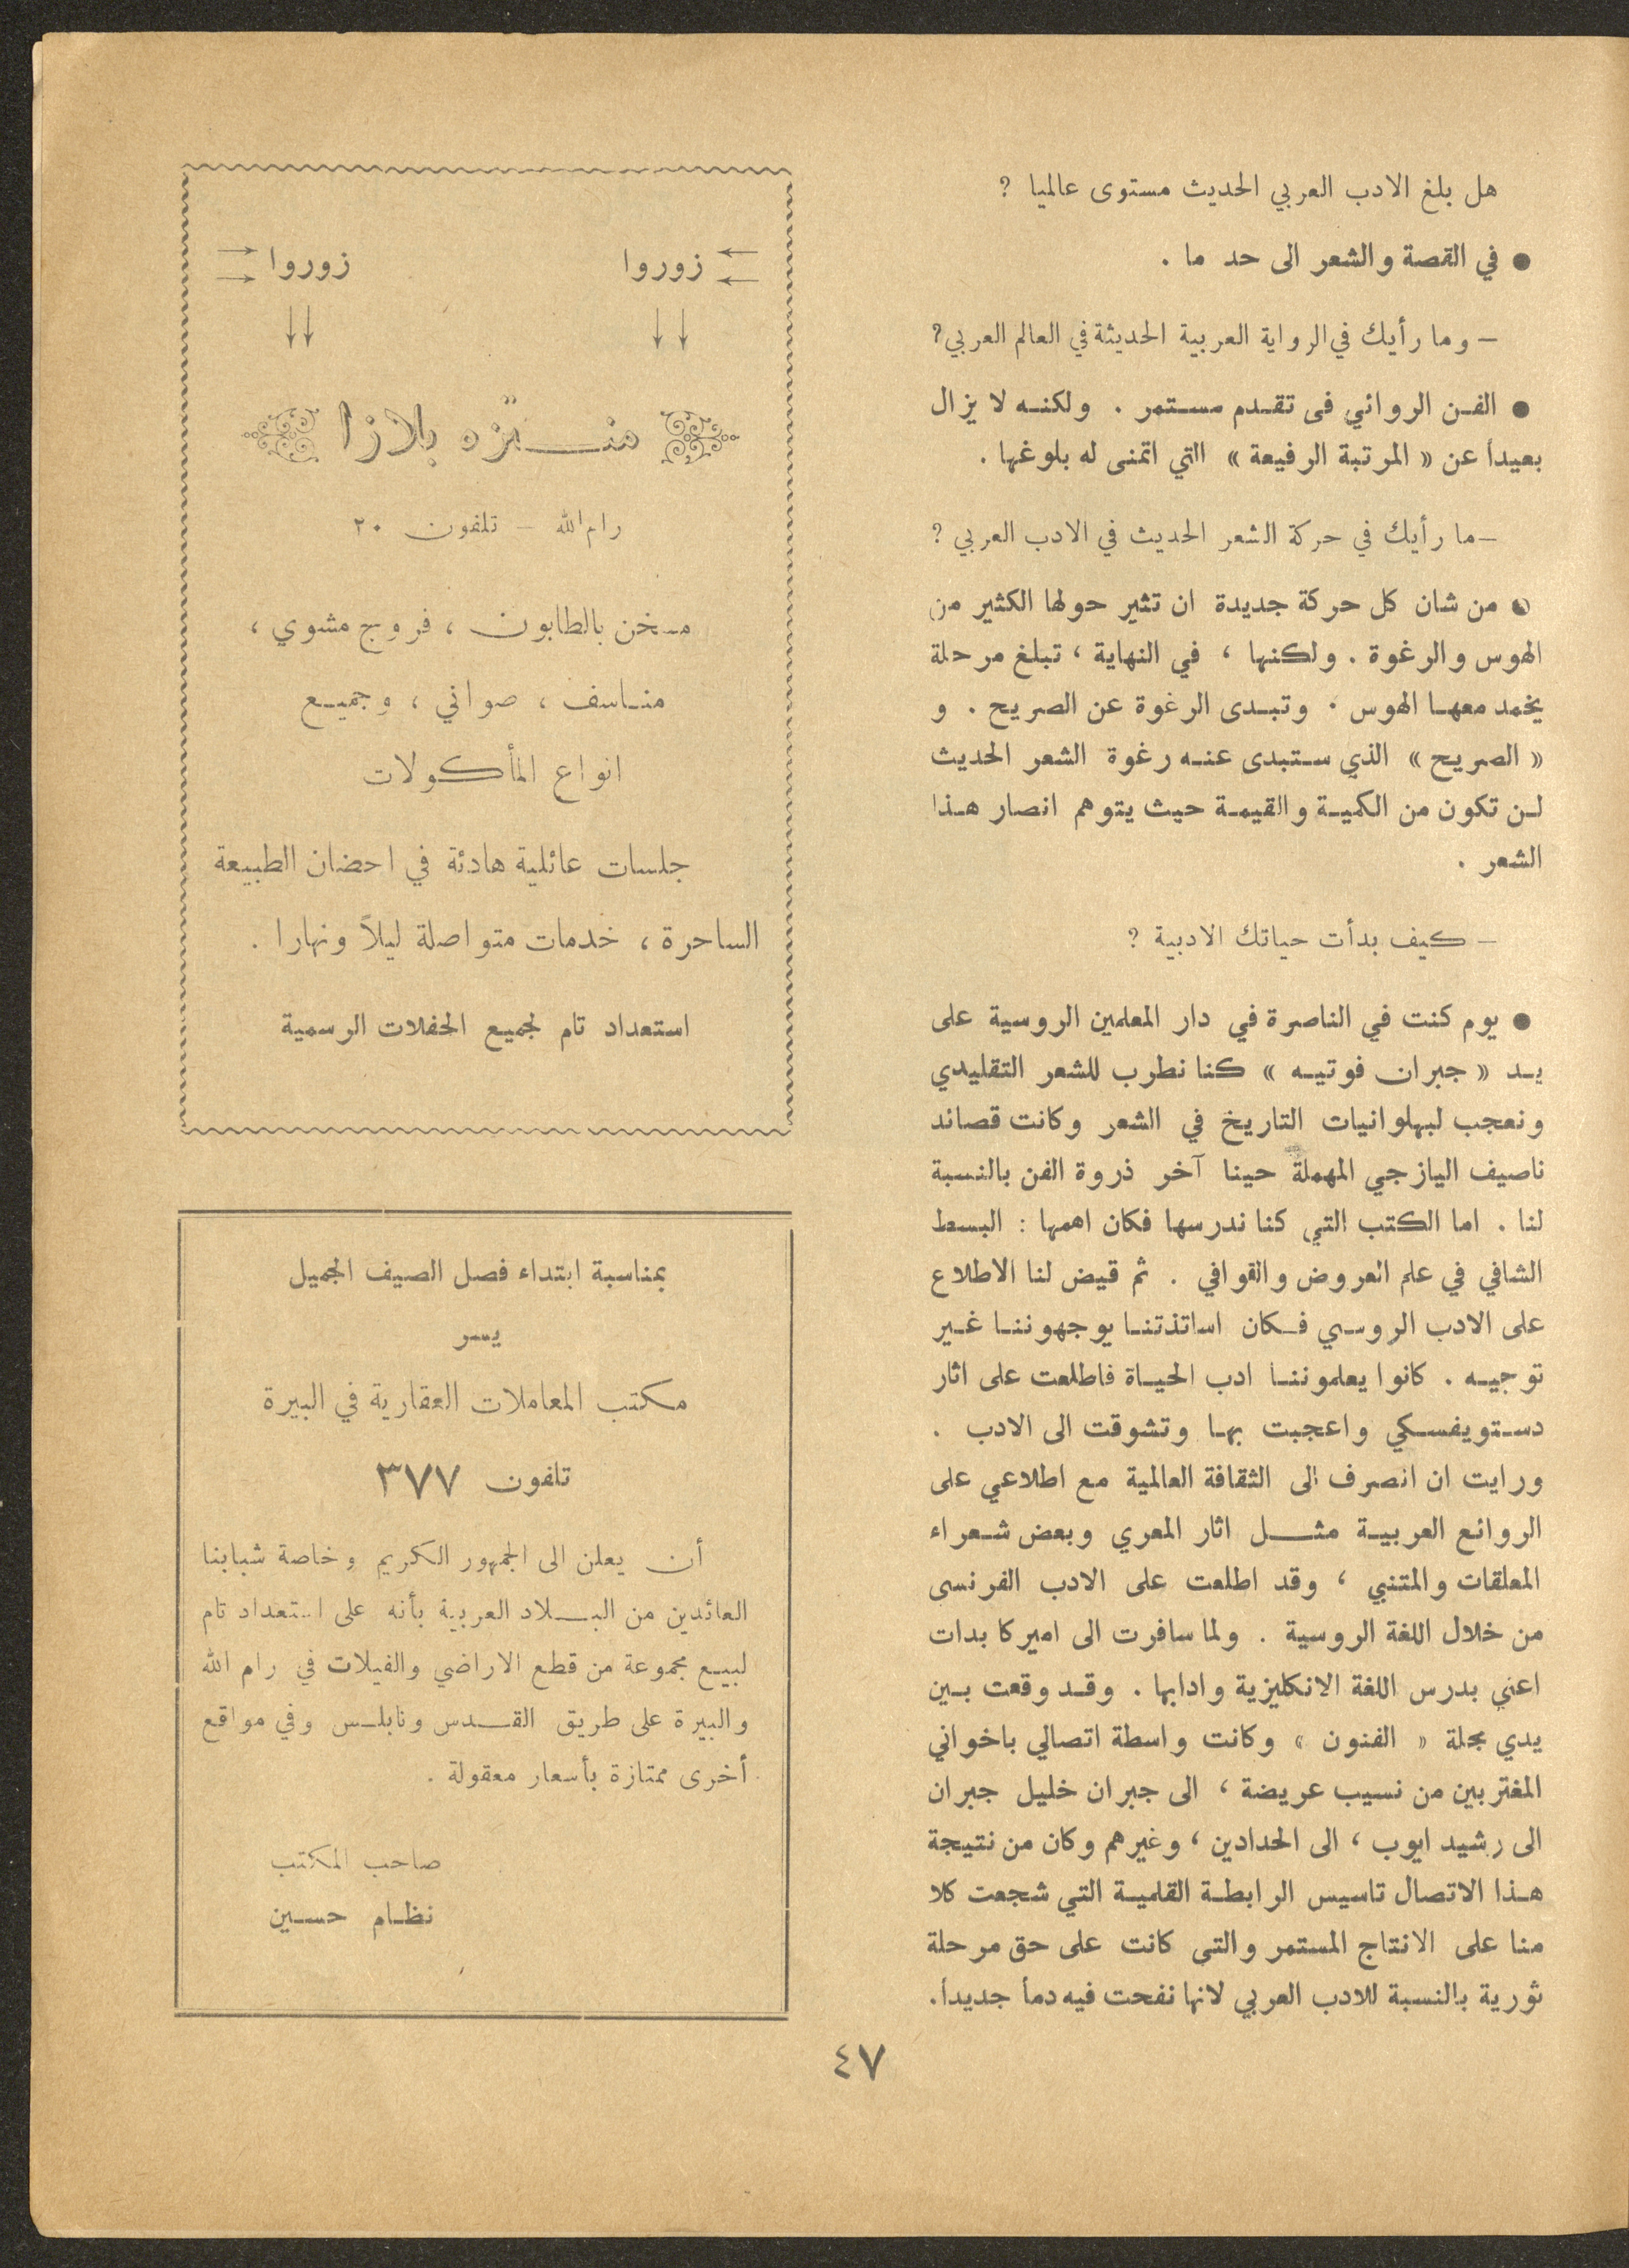 هل بلغ الادب العربي الحديث مستوى عالميا ؟
● في القصة والشعر الى حد ما .
– وما رأيك في الرواية العربية الحديثة في العالم العربي؟
● الفن الروائي فى تقدم مستمر . ولكنه لا يزال
بعيداً عن « المرتبة الرفيعة » التي اتمنى له بلوغها .
– ما رأيك في حركة الشعر الحديث في الادب العربي ؟
● من شان كل حركة جديدة ان تثير حولها الكثير من
الهوس والرغوة . ولكنها ، في النهاية ، تبلغ مرحلة
يخمد معها الهوس . وتبدى الرغوة عن الصريح . و
« الصريح » الذي ستبدى عنه رغوة الشعر الحديث
لن تكون من الكمية والقيمة حيث يتوهم انصار هذا
الشعر .
– كيف بدأت حياتك الادبية ؟
● يوم كنت في الناصرة في دار المعلمين الروسية على
يد « جبران فوتيه » كنا نطرب للشعر التقليدي
ونعجب لبهلوانيات التاريخ في الشعر وكانت قصائد
ناصيف اليازجي المهملة حينا آخر ذروة الفن بالنسبة
لنا . اما الكتب التي كنا ندرسها فكان اهمها : البسط
الشافي في علم العروض والقوافي . ثم قيض لنا الاطلاع
على الادب الروسي فكان اساتذتنا يوجهوننا غير
توجيه . كانوا يعلموننا ادب الحياة فاطلعت على اثار
دستويفسكي واعجبت بها وتشوقت الى الادب .
ورايت ان انصرف الى الثقافة العالمية مع اطلاعي على
الروائع العربية مثل اثار المعري وبعض شعراء
المعلقات والمتنبي ، وقد اطلعت على الادب الفرنسى
من خلال اللغة الروسية . ولما سافرت الى اميركا بدات
اعني بدرس اللغة الانكليزية وادابها . وقد وقعت بين
يدي مجلة « الفنون » وكانت واسطة اتصالي باخواني
المغتربين من نسيب عريضة ، الى جبران خليل جبران
الى رشيد ايوب ، الى الحدادين ، وغيرهم وكان من نتيجة
هذا الاتصال تاسيس الرابطة القلمية التي شجعت كلا
منا على الانتاج المستمر والتى كانت على حق مرحلة
ثورية بالنسبة للادب العربي لانها نفحت فيه دماً جديداً.
زوروا زوروا
منتزه بلازا
رام الله – تلفون ٢٠
مسخن بالطابون ، فروج مشوي ،
مناسف ، صواني ، وجميع
انواع المأكولات
جلسات عائلية هادئة في احضان الطبيعة
الساحرة ، خدمات متواصلة ليلاً ونهارا .
استعداد تام لجميع الحفلات الرسمية
بمناسبة ابتداء فصل الصيف الجميل
يسر
مكتب المعاملات العقارية في البيرة
تلفون ٣٧٧
أن يعلن الى الجمهور الكريم وخاصة شبابنا
العائدين من البلاد العربية بأنه على استعداد تام
لبيع مجموعة من قطع الاراضي والفيلات في رام الله
والبيرة على طريق القدس ونابلس وفي مواقع
أخرى ممتازة بأسعار معقولة .
صاحب المكتب
نظام حسين
٤٧